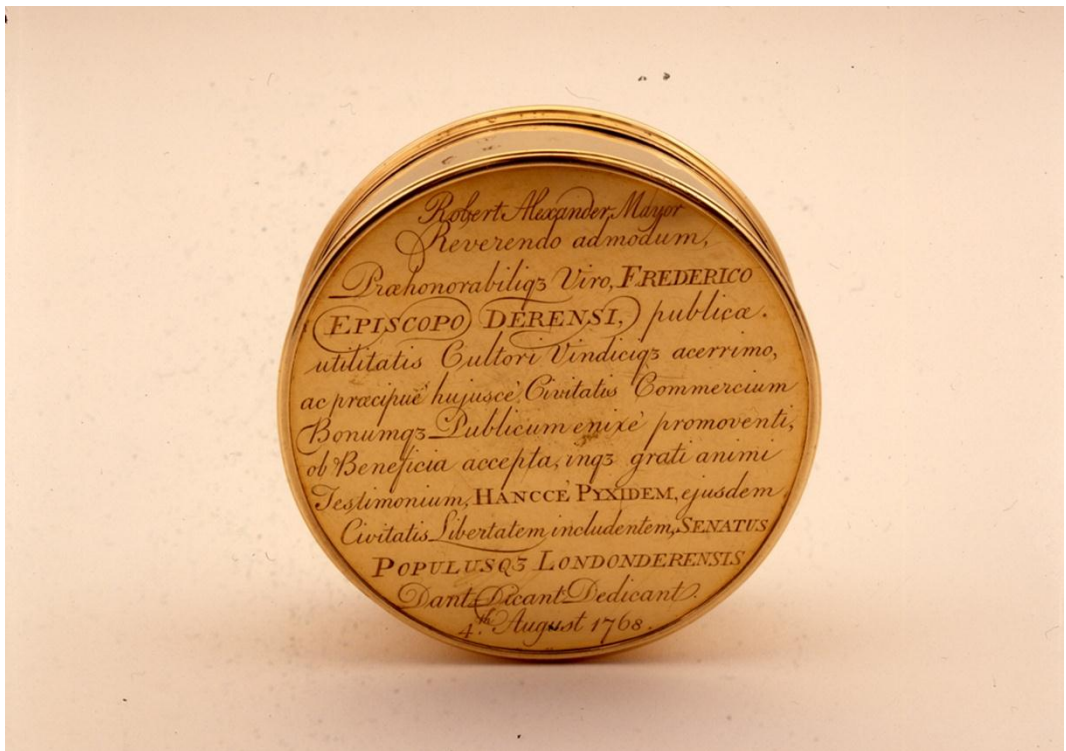 Robert Alexander Mayor
Reverendo admodum,
Præhonorabiliqꝫ Viro, FREDERICO
EPISCOPO DERENSI, publicæ
utilitatis Cultori Vindiciqꝫ acerrimo,
ac præcipuè hujuscè Civitatis Commercium
Bonumqꝫ Publicum enixè promoventi,
ob Beneficia accepta, inqꝫ grati animi
Testimonium, HANCCÈ PYXIDEM, ejusdem
Civitatis Libertatem includentem, SENATUS
POPULUSQꝫ LONDONDERENSIS
Dant Dicant Dedicant.
4.th August 1768.